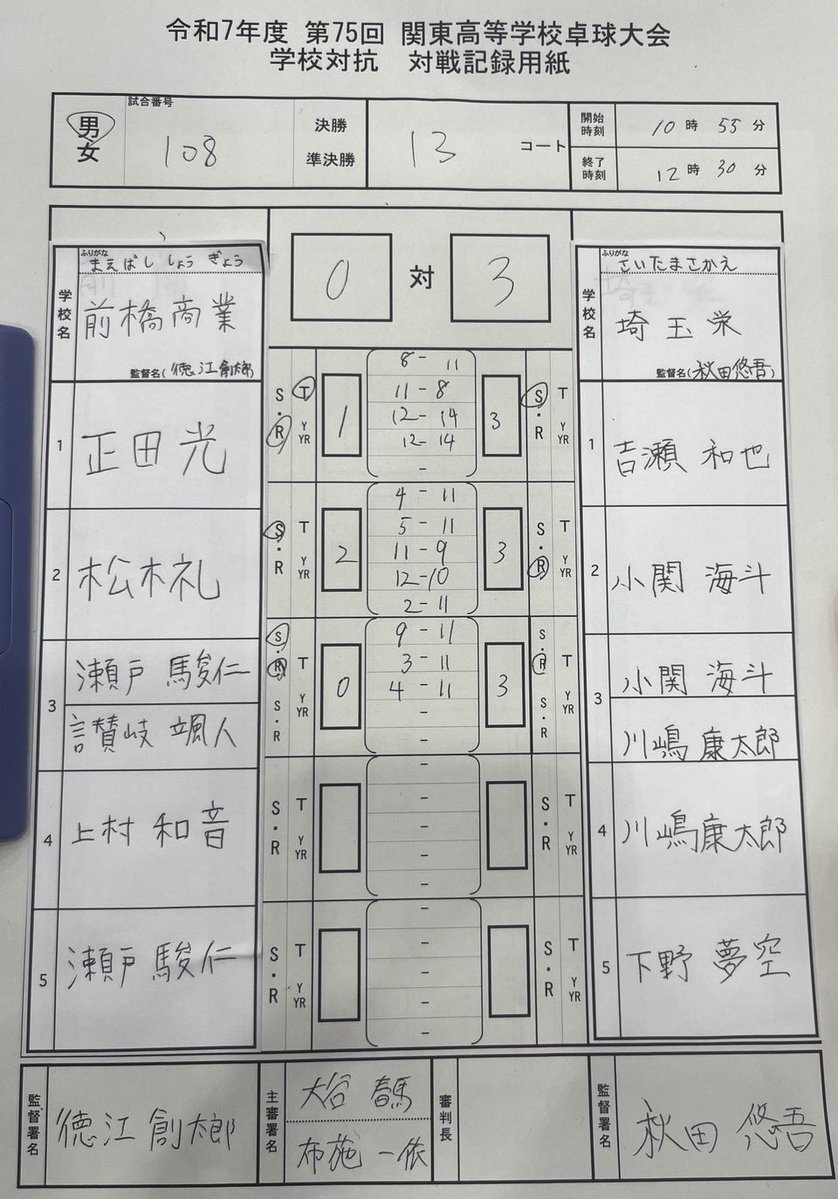 令和7年度 第75回 関東高等学校卓球大会
学校対抗 対戦記録用紙
男
女
試合番号
108
決勝
準決勝
13 コート
開始時刻 10時 55分
終了時刻 12時 30分
ふりがな まえばし しょう ぎょう
学校名 前橋商業
監督名(徳江創太郎)
0 対 3
ふりがな さいたまさかえ
学校名 埼玉栄
監督名(秋田悠吾)
1 正田光
S・R T Y YR
1
8 - 11
11 - 8
12 - 14
12 - 14
-
3
S・R T Y YR
1 吉瀬 和也
2 松木礼
S・R T Y YR
2
4 - 11
5 - 11
11 - 9
12 - 10
2 - 11
3
S・R T Y YR
2 小関 海斗
3 瀬戸 駿仁
讃岐 颯人
S・R T Y YR
S・R
0
9 - 11
3 - 11
4 - 11
-
-
3
S・R T Y YR
S・R
3 小関 海斗
川嶋 康太郎
4 上村 和音
S・R T Y YR
-
-
-
-
-
S・R T Y YR
4 川嶋康太郎
5 瀬戸 駿仁
S・R T Y YR
-
-
-
-
-
S・R T Y YR
5 下野 夢空
監督署名 徳江 創太郎
主審署名 大谷 春馬
布施 一依
審判長
監督署名 秋田 悠吾